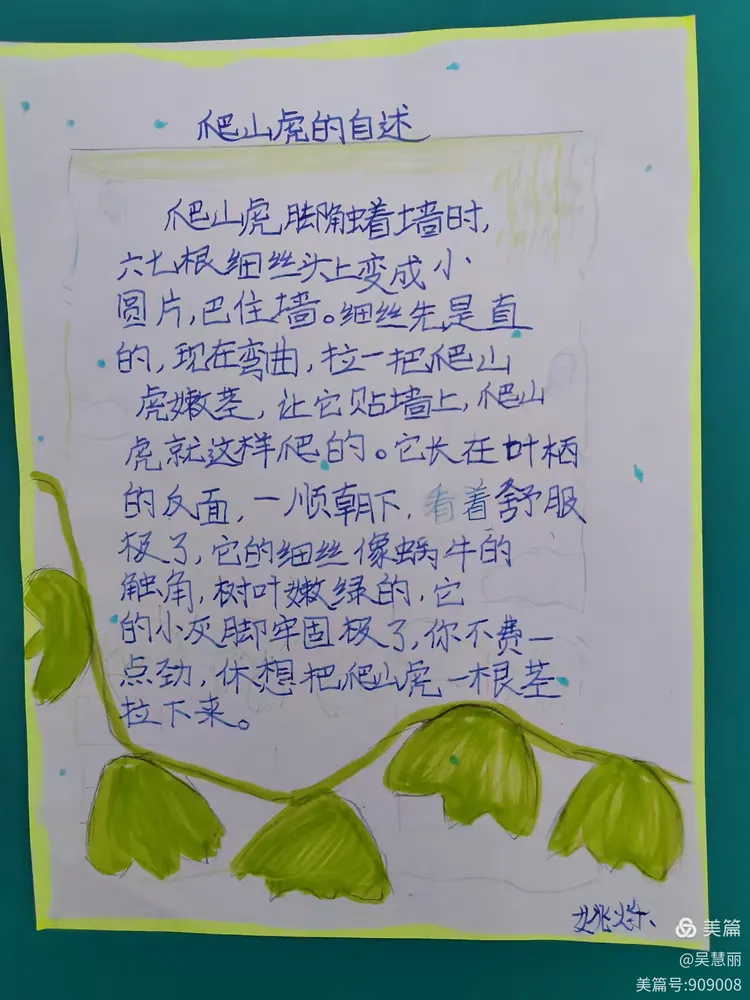 爬山虎的自述
爬山虎脚触着墙时,
六七根细丝头上变成小
圆片,巴住墙。细丝先是直
的,现在弯曲,拉一把爬山
虎嫩茎,让它贴墙上,爬山
虎就这样爬的。它长在叶柄
的反面,一顺朝下,看着舒服
极了,它的细丝像蜗牛的
触角,树叶嫩绿的,它
的小灰脚牢固极了,你不费一
点劲,休想把爬山虎一根茎
拉下来。
美篇
@吴慧丽
美篇号:909008